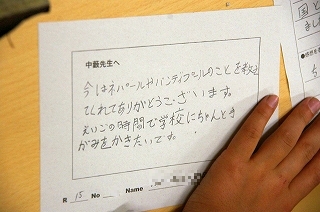 中藪先生へ
今はネパールやバンティプールのことを教え
てくれてありがとうございます。
えいごの時間で学校にちゃんとて
がみをかきたいです。
R 15 No Name
国と